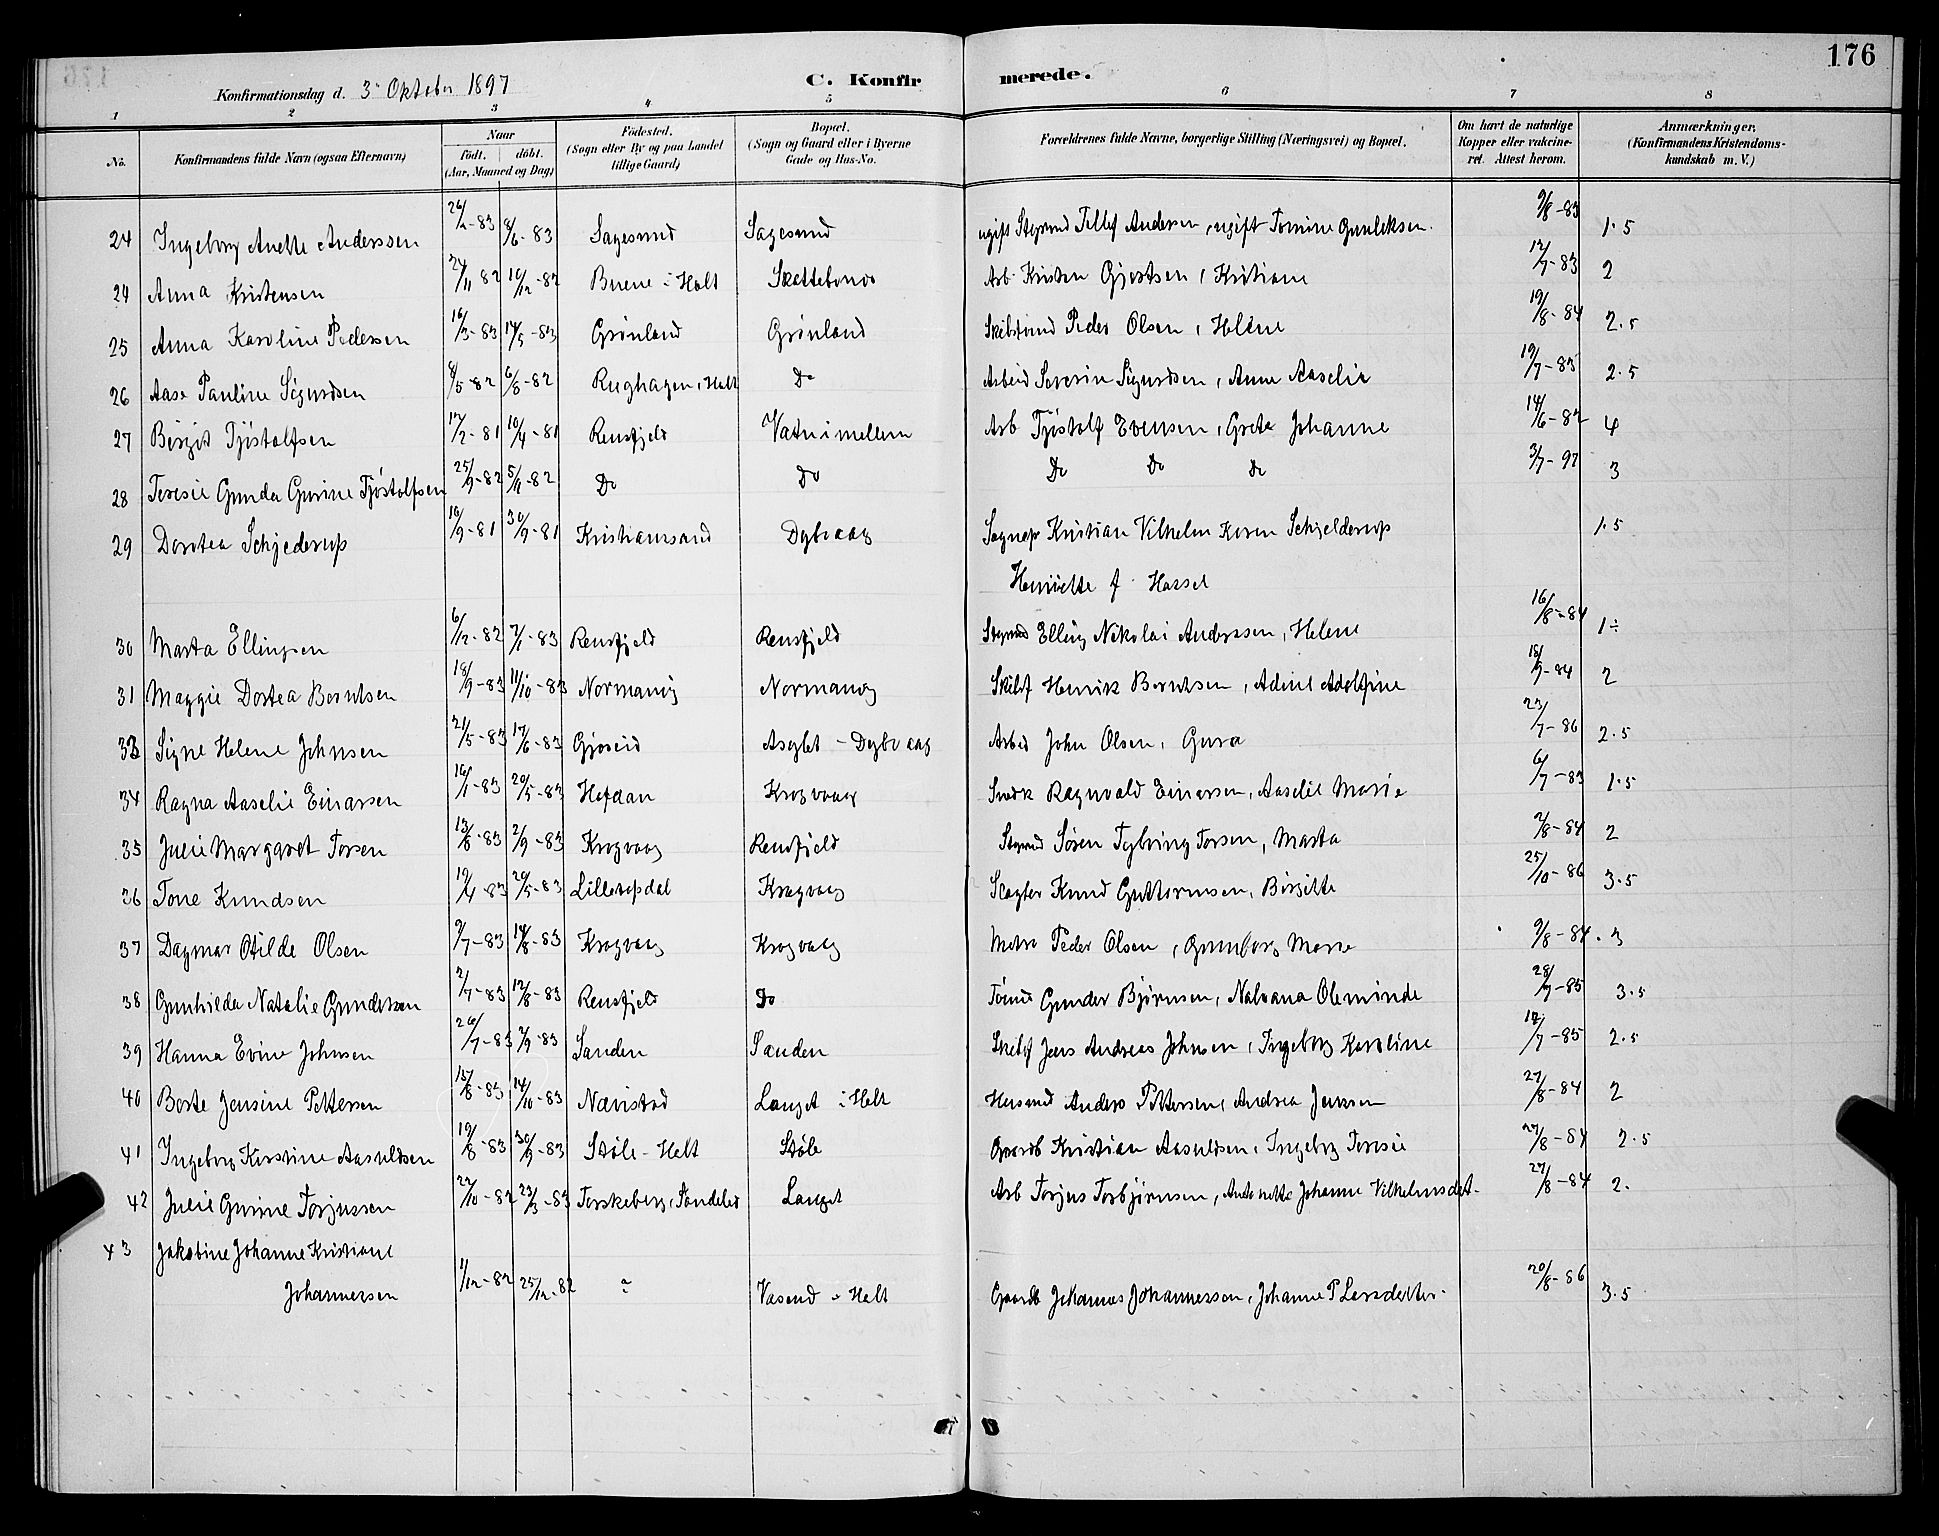 176
Konfirmationsdag d. 3 Oktober 1897
C. Konfirmerede.
1 2 3 4 5 6 7 8
No. Konfirmandens fulde Navn (ogsaa Efternavn) Naar født. døbt. (Aar, Maaned og Dag) Fødested. (Sogn eller By og paa Landet tillige Gaard) Bopæl. (Sogn og Gaard eller i Byerne Gade og Hus-No. Forældrenes fulde Navne, borgerlige Stilling (Næringsvei) og Bopæl. Om havt de naturlige Kopper eller vakcineret. Attest herom. Anmærkninger. (Konfirmandens Kristendomskundskab m. V.)
24 Ingeborg Anette Anderssen 8/6-83 Sagesund Sagesund ugift Tellef Andersen, ugift Tomine Gunleksen. 9/8-83 1.5
24 Anna Kristensen 24/11 82 10/12-82 i Holt Arb. Kristen Gjertsen, Kristiane 12/7-83 2
25 Anna Karoline Pedersen 16/3-83 14/5-83 Grönland Grönland Peder Olsen, Heléne 19/8-84 2.5
26 Aase Pauline Sigurdsen 4/5-82 6/8-82 Rughagen, Holt Do Arbeid Severin Sigurdsen, Anne Aaselie 19/7-83 2.5
27 Birgit Tjöstolfsen 17/2-81 10/4-81 Rensfjeld Vatnimellem Arb Tjöstolf Evensen, Grete Johanne 14/6-82 4
28 Teresie Gunda Gurine Tjöstolfsen 25/9-82 5/11-82 Do Do Do Do Do 3/7-97 3
29 Dorotea Schjederup 10/9-81 30/9-81 Kristianssand Dybvaag Sognepr Kristian Vilhelm Koren Schjelderup 1.5
Henriette f. Hassel
30 Marta Ellingsen 6/12-82 7/1-83 Rensfjeld Rensfjeld Elling Nikolai Anderssen, Helene 16/8-84 1÷
31 Maggie Dortea Berntsen 18/9-83 11/10-83 Normanvig Normanvig Skibsf Henrik Berntsen, Adine Adolfine 18/9-84 2
33 Signe Helene Johnsen 21/5-83 17/6-83 Gjæseid Asylet - Dybvaag Arbeid John Olsen, Guro 23/7-86 2.5
34 Ragna Aaselie Einarsen 16/1-83 20/5-83 Hofdan Krogvaag Snedk Ragnvald Einersen, Aaselie Marie 6/7-83 1.5
35 Julie Margaret Torsen 13/6-83 2/9-83 Krogvaag Rensfjeld Sören Tybring Torsen, Marta 7/8-84 2
36 Tone Knudsen 19/4-83 20/5-83 Krogvaag Slagter Knud Guttormsen, Birgitte 25/10-86 3.5
37 Dagmar Otilde Olsen 9/7-83 14/8-83 Krogvaag Krogvaag Matro Peder Olsen, Gunborg Marie 9/8-84. 3
38 Gunhilda Natalie Gundersen 2/7-83 12/8-83 Rensfjeld Do Tömm Gunder Björnsen, Nalvana Oleminde 28/7-85 3.5
39 Hanna Evine Johnsen 26/7-83 2/9-83 Sanden Sanden Skibsf Jens Andreas Johnsen, Ingeborg Karoline 17/7-85 2.5
40 Borte Jensine Pettersen 15/8-83 14/10-83 Nævistad Langet i Holt Husmd Anders Pettersen, Andrea Jenssen 27/8-84 2
41 Ingeborg Kirstine Aasuldsen 19/8-83 30/9-83 Støle - Holt Støle Gaardb Kristian Aasuldsen, Ingeborg Teresie 27/8-84 2.5
42 Julie Gurine Torjussen 22/10-82 23/3-83 Torskeberg, Søndeled Langet Arb Torjus Torbjörnsen, Antonette Johanne Vilhelmsdat. 27/8-84 2.
43 Jakobine Johanne Kristiane
Johannessen 1/12-82 25/12-82 ? Vasend i Holt Gaardb Johannes Johannessen, Johanne P Larsdatter. 20/8-86 3.5